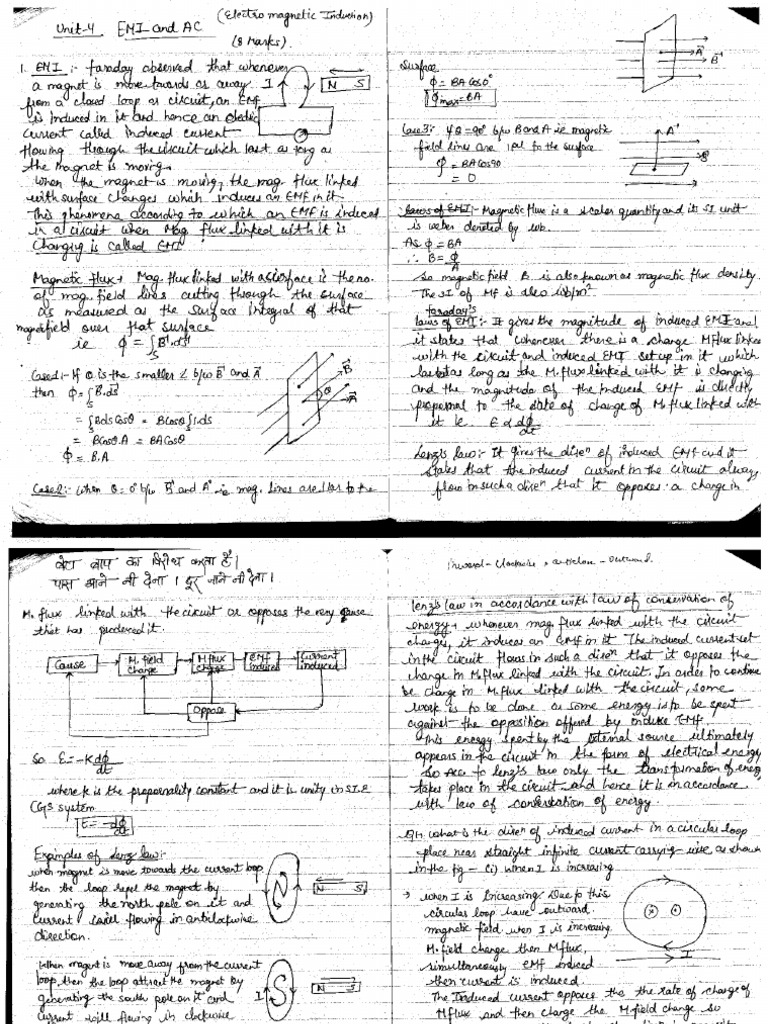 Unit-4 EMI and AC (Electro magnetic Induction)
(8 Marks).
1. EMI :- faraday observed that whenever
a magnet is move towards or away
from a cloud loop or circuit, an EMF
is induced in it and hence an electric
current called induced current
flowing through the circuit which last as long as
the magnet is moving.
When the magnet is moving, the mag. flux linked
with surface changes which induces an EMF in it.
This phenomena according to which an EMF is induced
in a circuit when Mag. flux linked with it is
Changing is called EMI
I
N S
Magnetic flux → Mag. flux linked with a surface is the no.
of mag. field lines cutting through the surface
as measured as the surface integral of that
magnetic field over that surface
ie ϕ = ∫ B.ds
S
Case1:- If θ is the smaller ∠ b/w B and A
then ϕ = ∫ B.ds
S
= ∫ Bds Cosθ = BCosθ ∫ 1.ds
= BCosθ.A = BACosθ
ϕ = B.A
B
θ
A
Case2:- When θ=0° b/w B and A ie mag. lines are ⊥ar to the
Surface
ϕ = BACos0°
ϕmax = BA
A
B
Case3:- If θ=90° b/w B and A ie magnetic
field lines are ||al to the surface
ϕ = BACos90
= 0
A
B
laws of EMI:- Magnetic flux is a scaler quantity and its SI unit
is weber denoted by wb.
As ϕ = BA
∴ B = ϕ/A
So magnetic field B is also known as magnetic flux density.
The SI of MF is also wb/m²
faraday's
laws of EMI:- It gives the magnitude of induced EMF and
it states that whenever there is a change M.flux linked
with the circuit and induced EMI set up in it which
last as long as the M.flux linked with it is changing
and the magnitude of the induced EMF is directly
propornal to the rate of change of M.flux linked with
it ie E ∝ dϕ/dt
Lenz's law:- It gives the diren of induced EMF and it
states that the induced current in the circuit always
flow in such a diren that it opposes a change in
बेटा बाप का विरोध करता है।
पास आने नी देगा। दूर जाने नी देगा।
M. flux linked with the circuit or opposes the very cause
that has produced it.
Cause
M. field change
M flux change
EMF induced
Current induced
Oppose
So E = -K dϕ/dt
where k is the propornality constant and it is unity in SI &
CGS system
E = -dϕ/dt
Examples of Lenz law:-
when magnet is move towards the current loop
then the loop repel the magnet by
generating the north pole on it and
current flowing in anticlockwise
direction.
N
N S
When maget is move away from the current
loop then the loop attract the magnet by
generating the south pole on it and
current will flowing in clockwise
I
S
N S
Inward - Clockwise, anticlock - outward.
lenz's law in accordance with law of conservation of
energy → whenever mag. flux linked with the circuit
changes, it induces an EMF in it. The induced current set
in the circuit flows in such a diren that it opposes the
change in M.flux linked with the circuit. In order to continue
be change in M.flux linked with the circuit, some
work is to be done or some energy is to be spent
against the opposition offered by induce EMF.
This energy spent by the external source ultimately
appears in the circuit in the form of electrical energy
So acc to lenz's law only the transformation of energy
takes place in the circuit and hence it is in accordance
with law of conservation of energy.
Q1. What is the diren of induced current in a circular loop
place near straight infinite current carrying wire as shown
in the fig - (i) when I is increasing
→ when I is Increasing: Due to this
circular loop have outward
magnetic field. when I is increasing
M. field change then Mflux,
simultaneously EMF induced
then current is induced.
The Induced current oppose the the rate of change of
Mflux and then change the M.field change so
I